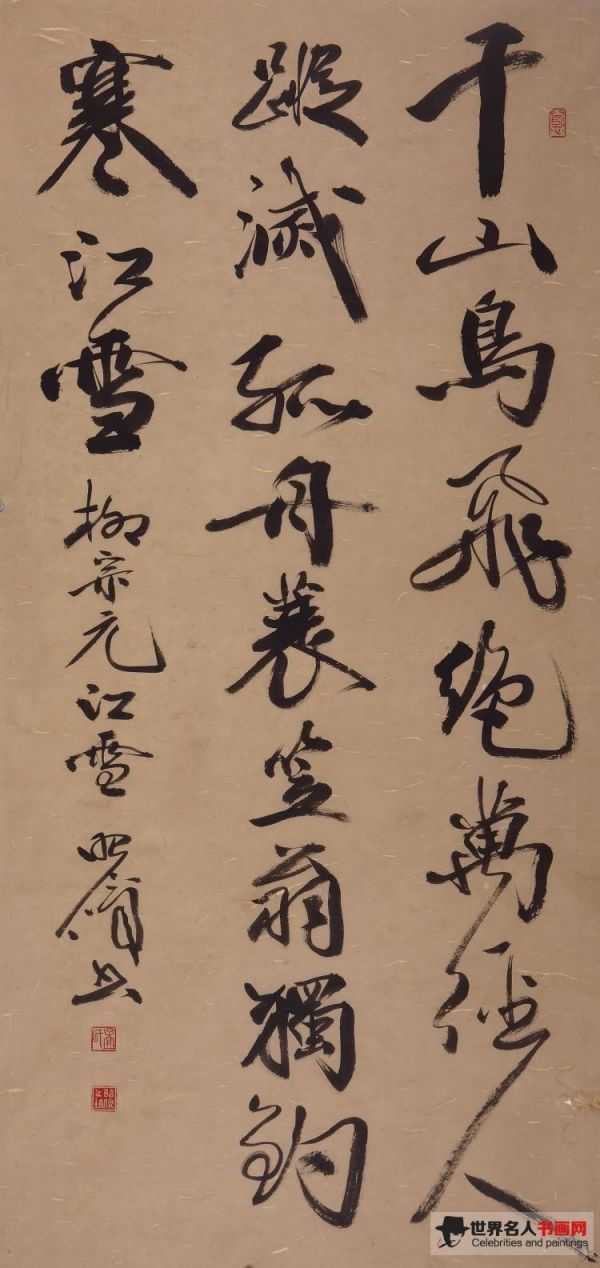 千山鸟飛絶萬径人
蹤滅孤舟蓑笠翁獨釣
寒江雪 柳宗元江雪
世界名人书画网
Celebrities and paintings